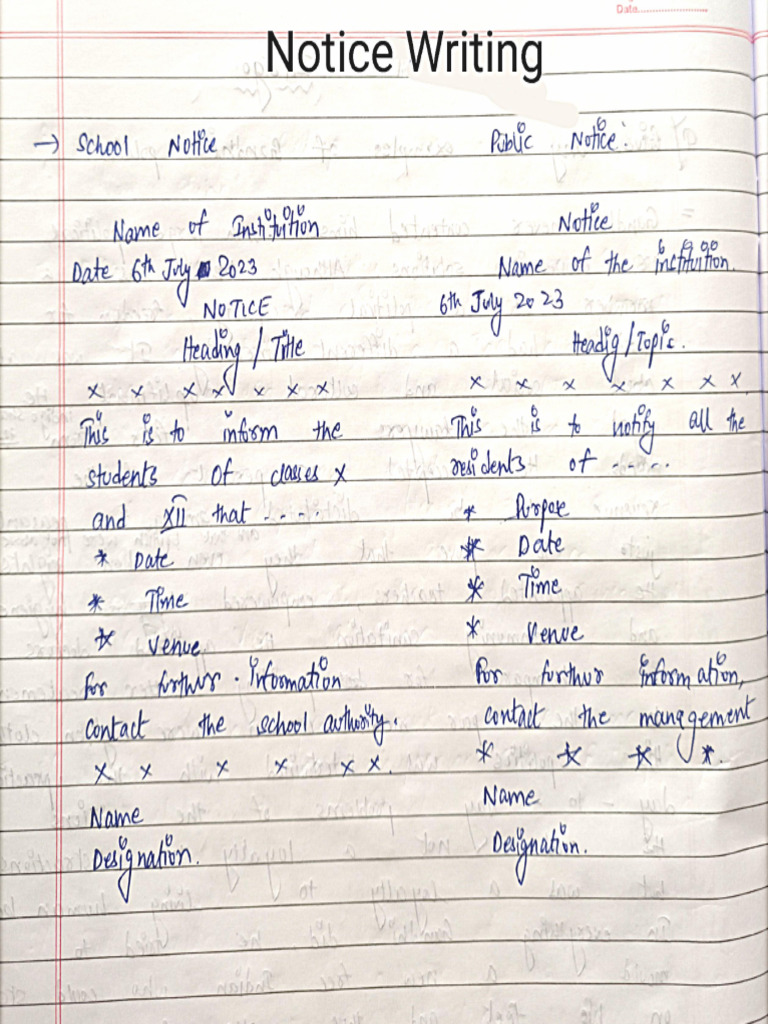 Date
Notice Writing
→ School Notice
Name of Instituition
Date 6th July 2023
NOTICE
Heading / Title
x x x x x x x
This is to inform the
students of classes X
and XII that - - - .
* Date
* Time
* Venue
for further . Information
contact the school authority.
x x x x x x.
Name
Designation.
Public Notice:
Notice
Name of the instituition.
6th July 2023
Headig / Topic.
x x x x x x x.
This is to notify all the
residents of - - - - .
* Purpose
* Date
* Time
* Venue
For further information,
contact the management
* * * *.
Name
Designation.